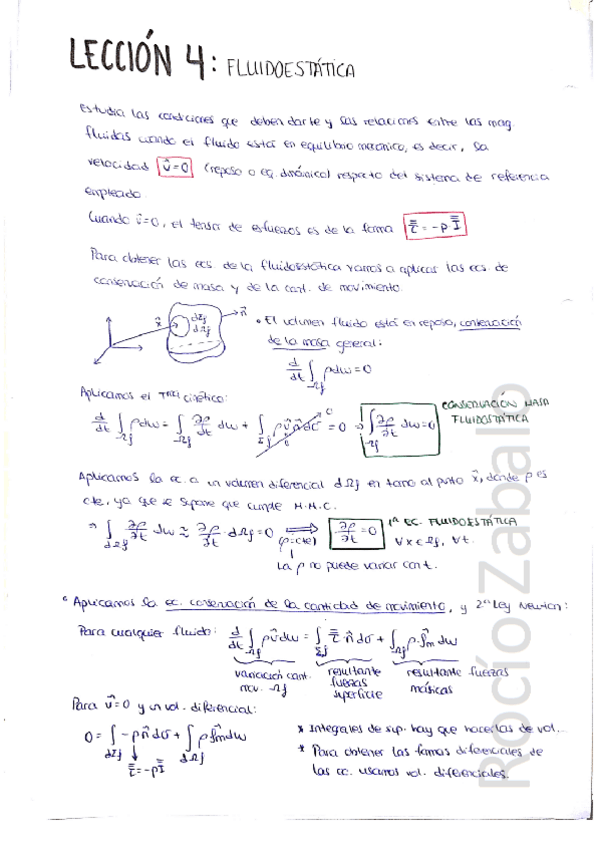 LECCIÓN 4: FLUIDOESTÁTICA
Estudia las condiciones que deben darse y las relaciones entre las mag.
fluidas cuando el fluido está en equilibrio mecánico, es decir, la
velocidad v̄=0 (reposo o eq. dinámico) respecto del sistema de referencia
empleado.
Cuando v̄=0, el tensor de esfuerzos es de la forma τ̿ = -p I̿
Para obtener las ecs. de la fluidoestática vamos a aplicar las ecs. de
conservación de masa y de la cant. de movimiento.
x̄ dΣf dΩf n̄
• El volumen fluido está en reposo, conservación
de la masa general:
d/dt ∫Ωf ρdω = 0
Aplicamos el TTR1 cinético:
d/dt ∫Ωf ρdω = ∫Ωf ∂ρ/∂t dω + ∫Σf ρ v̄ n̄ dσ = 0 → ∫Ωf ∂ρ/∂t dω = 0
CONSERVACIÓN MASA
FLUIDOSTÁTICA
Aplicamos la ec. a un volumen diferencial dΩf en torno al punto x̄, donde ρ es
cte, ya que se supone que cumple H.M.C.
⇒ ∫dΩf ∂ρ/∂t dω ≃ ∂ρ/∂t · dΩf = 0 ⟹ (ρ=cte) ∂ρ/∂t = 0
1ª EC. FLUIDOESTÁTICA
∀x ∈ Ωf, ∀t.
La ρ no puede variar con t.
• Aplicamos la ec. conservación de la cantidad de movimiento, y 2ª Ley Newton:
Para cualquier fluido: d/dt ∫Ωf ρv̄dω = ∫Σf τ̿·n̄dσ + ∫Ωf ρ·f̄m dω
variación cant. mov. Ωf
resultante fuerzas superficie
resultante fuerzas másicas
Para v̄=0 y un vol. diferencial:
0 = ∫dΣf -p n̄dσ + ∫dΩf ρ f̄m dω
τ̿=-pI̿
* Integrales de sup. hay que hacerlas de vol...
* Para obtener las formas diferenciales de
las ec. usamos vol. diferenciales.
Rocíozaballo